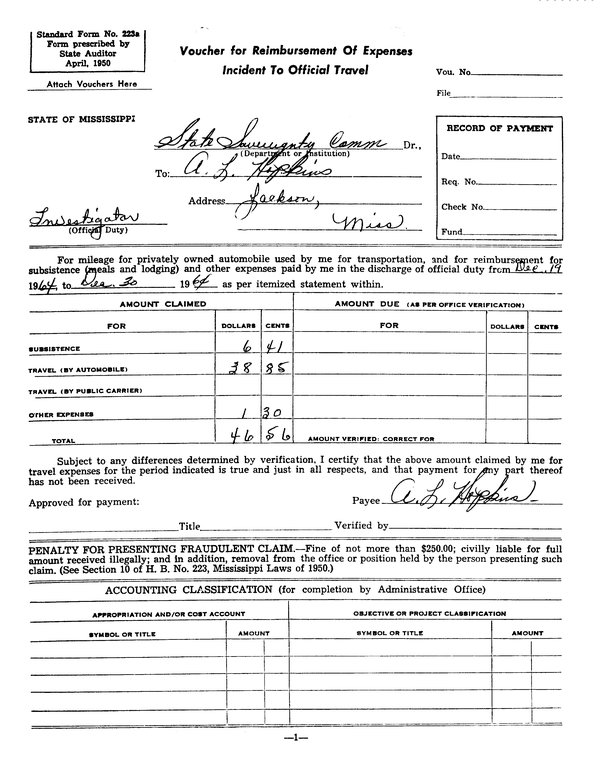 Standard Form No. 223a
Form prescribed by
State Auditor
April, 1950
Attach Vouchers Here
Voucher for Reimbursement Of Expenses
Incident To Official Travel
Vou. No.
File
STATE OF MISSISSIPPI
State Sovereignty Comm Dr.,
(Department or Institution)
To: A. L. Hopkins
Address Jackson,
Miss
Investigator
(Official Duty)
RECORD OF PAYMENT
Date
Req. No.
Check No.
Fund
For mileage for privately owned automobile used by me for transportation, and for reimbursement for
subsistence (meals and lodging) and other expenses paid by me in the discharge of official duty from Dec. 19
1964, to Dec. 30 1964 as per itemized statement within.
AMOUNT CLAIMED AMOUNT DUE (AS PER OFFICE VERIFICATION)
FOR DOLLARS CENTS FOR DOLLARS CENTS
SUBSISTENCE 6 41
TRAVEL (BY AUTOMOBILE) 38 85
TRAVEL (BY PUBLIC CARRIER)
OTHER EXPENSES 1 30
TOTAL 46 56 AMOUNT VERIFIED: CORRECT FOR
Subject to any differences determined by verification, I certify that the above amount claimed by me for
travel expenses for the period indicated is true and just in all respects, and that payment for any part thereof
has not been received.
Approved for payment: Payee A. L. Hopkins
Title Verified by
PENALTY FOR PRESENTING FRAUDULENT CLAIM.—Fine of not more than $250.00; civilly liable for full
amount received illegally; and in addition, removal from the office or position held by the person presenting such
claim. (See Section 10 of H. B. No. 223, Mississippi Laws of 1950.)
ACCOUNTING CLASSIFICATION (for completion by Administrative Office)
APPROPRIATION AND/OR COST ACCOUNT OBJECTIVE OR PROJECT CLASSIFICATION
SYMBOL OR TITLE AMOUNT SYMBOL OR TITLE AMOUNT
—1—